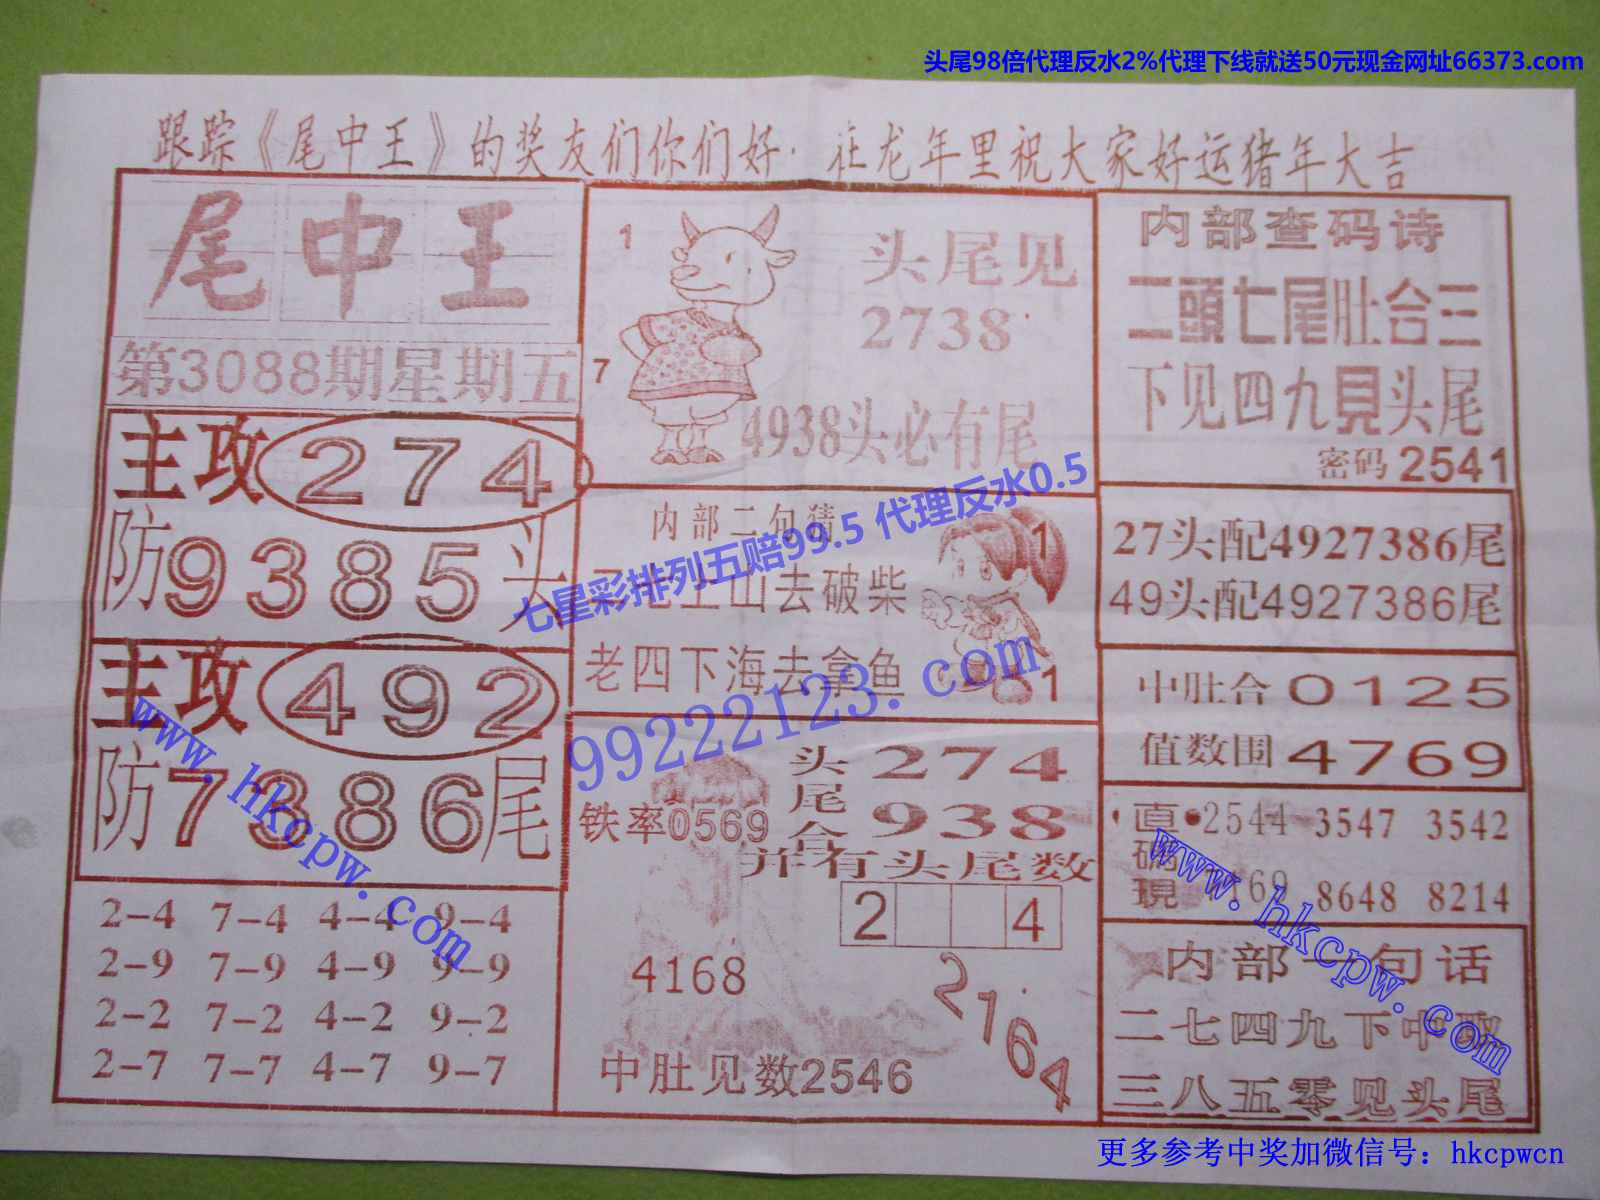 头尾98倍代理反水2%代理下线就送50元现金网址66373.com
跟踪《尾中王》的奖友们你们好·在龙年里祝大家好运猪年大吉
尾中王
第3088期星期五
主攻 274
防9385头
主攻 492
防7386尾
2-4 7-4 4-4 9-4
2-9 7-9 4-9 9-9
2-2 7-2 4-2 9-2
2-7 7-7 4-7 9-7
1
7
头尾见
2738
4938头必有尾
内部二句猜
七上山去破柴
老四下海去拿鱼
1
1
七星彩排列五赔99.5 代理反水0.5
99222123.com
头尾合
274
938
铁率0569
并有头尾数
2 4
4168
2164
中肚见数2546
内部查码诗
二頭七尾肚合三
下见四九見头尾
密码2541
27头配4927386尾
49头配4927386尾
中肚合0125
值数围4769
直码現
2544 3547 3542
69 8648 8214
内部一句话
二七四九下中取
三八五零见头尾
www.hkcpw.com
www.hkcpw.com
更多参考中奖加微信号：hkcpwcn